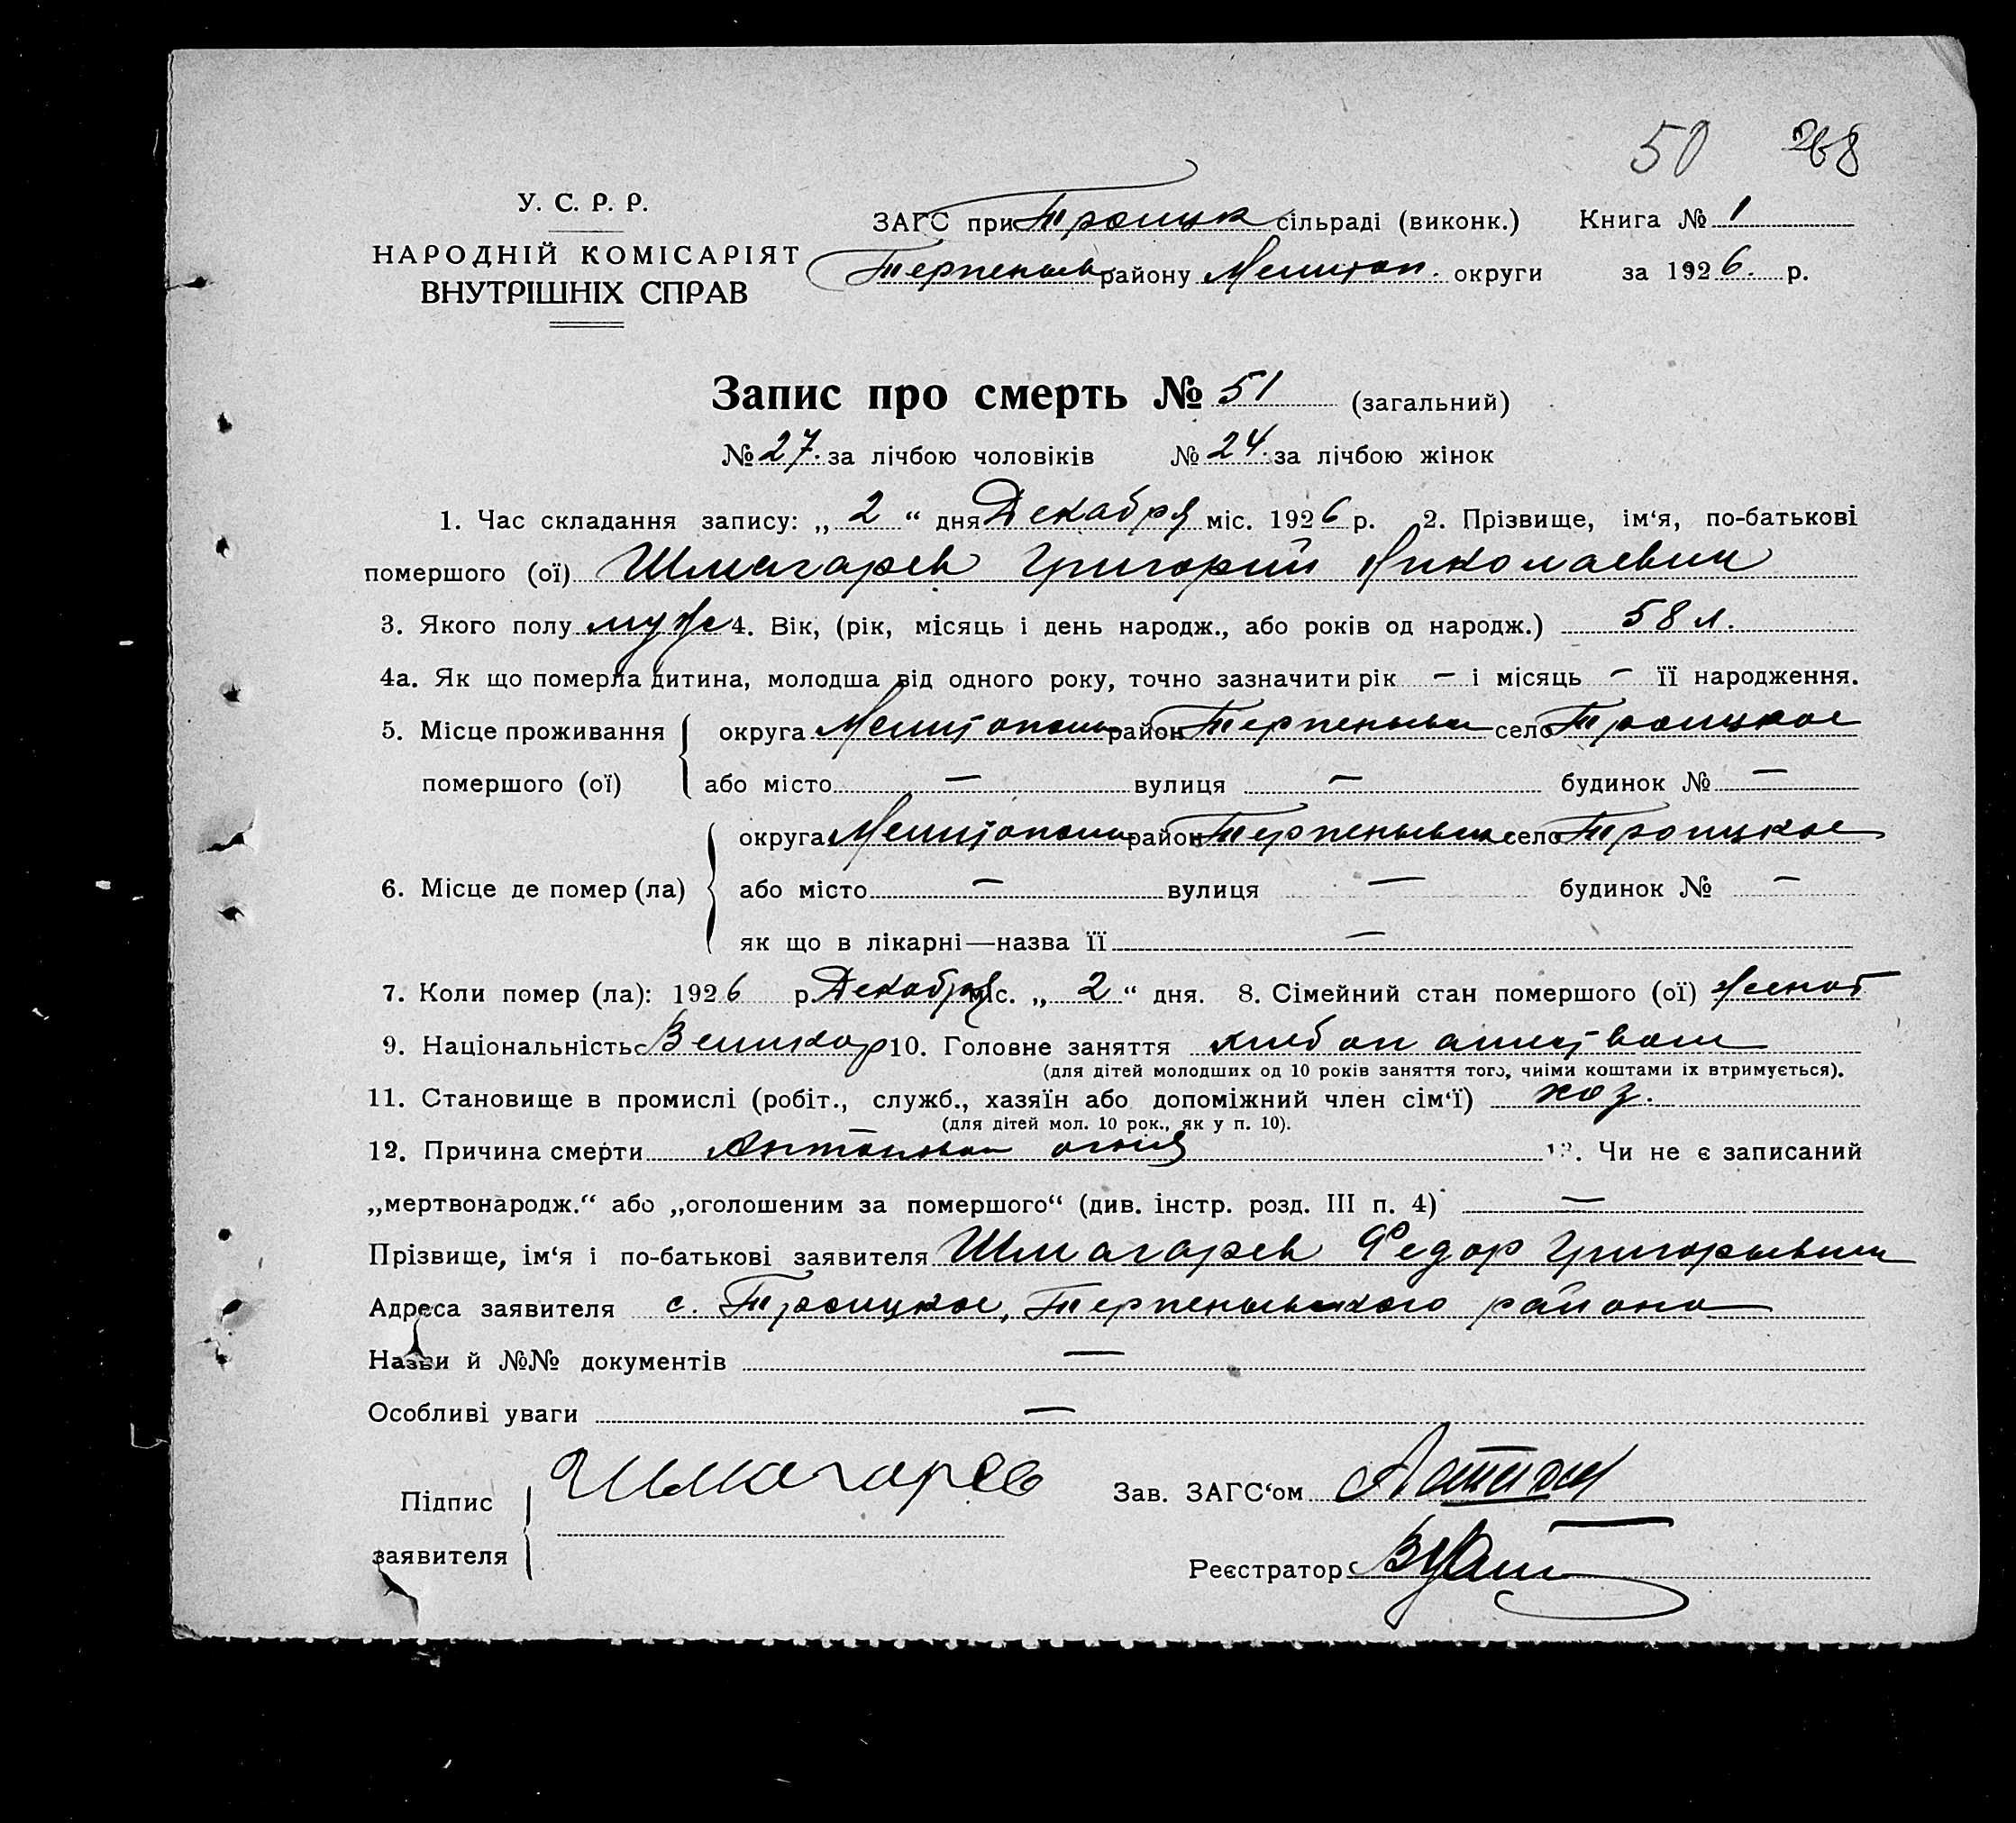 50 268
У. С. Р. Р.
НАРОДНІЙ КОМІСАРІЯТ
ВНУТРІШНІХ СПРАВ
ЗАГС при Троицк сільраді (виконк.) Книга № 1
Терпеньев району Мелитоп. округи за 1926. р.
Запис про смерть № 51 (загальний)
№ 27. за лічбою чоловіків № 24. за лічбою жінок
1. Час складання запису: „ 2 “ дня Декабря міс. 1926 р. 2. Прізвище, ім‘я, по-батькові
помершого (ої) Шмагарев Григорий Николаевич
3. Якого полу муж 4. Вік, (рік, місяць і день народж., або років од народж.) 58 л.
4а. Як що померла дитина, молодша від одного року, точно зазначити рік — і місяць — її народження.
5. Місце проживання округа Мелитопол район Терпеньев село Троицкое
помершого (ої) або місто — вулиця — будинок № —
округа Мелитопол район Терпеньев село Троицкое
6. Місце де помер (ла) або місто — вулиця — будинок № —
як що в лікарні—назва її —
7. Коли помер (ла): 1926 р. Декабря міс. „ 2 “ дня. 8. Сімейний стан помершого (ої) женат
9. Національність Великор 10. Головне заняття хлебопашество
(для дітей молодших од 10 років заняття того, чиїми коштами їх втримується).
11. Становище в промислі (робіт., служб., хазяїн або допоміжний член сім‘ї) хоз.
(для дітей мол. 10 рок., як у п. 10).
12. Причина смерти Антонов огонь 13. Чи не є записаний
„мертвонародж.“ або „оголошеним за помершого“ (див. інстр. розд. III п. 4) —
Прізвище, ім‘я і по-батькові заявителя Шмагарев Федор Григорьевич
Адреса заявителя с. Троицкое, Терпеньевского района
Назви й №№ документів —
Особливі уваги —
Підпис Шмагарев Зав. ЗАГС‘ом
заявителя Реєстратор